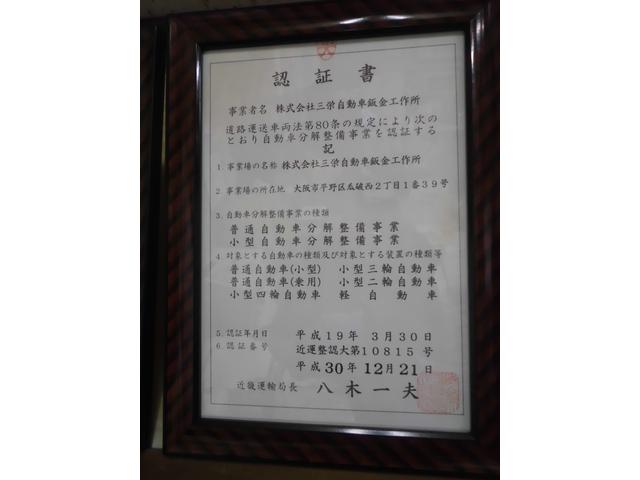 認証書
事業者名 株式会社三栄自動車鈑金工作所
道路運送車両法第80条の規定により次の
とおり自動車分解整備事業を認証する
記
1. 事業場の名称 株式会社三栄自動車鈑金工作所
2. 事業場の所在地 大阪市平野区瓜破西2丁目1番39号
3. 自動車分解整備事業の種類
普通自動車分解整備事業
小型自動車分解整備事業
4. 対象とする自動車の種類及び対象とする装置の種類等
普通自動車(小型) 小型三輪自動車
普通自動車(乗用) 小型二輪自動車
小型四輪自動車 軽自動車
5. 認証年月日 平成19年 3月30日
6. 認証番号 近運整認大第10815 号
平成30年12月21日
近畿運輸局長 八木一夫